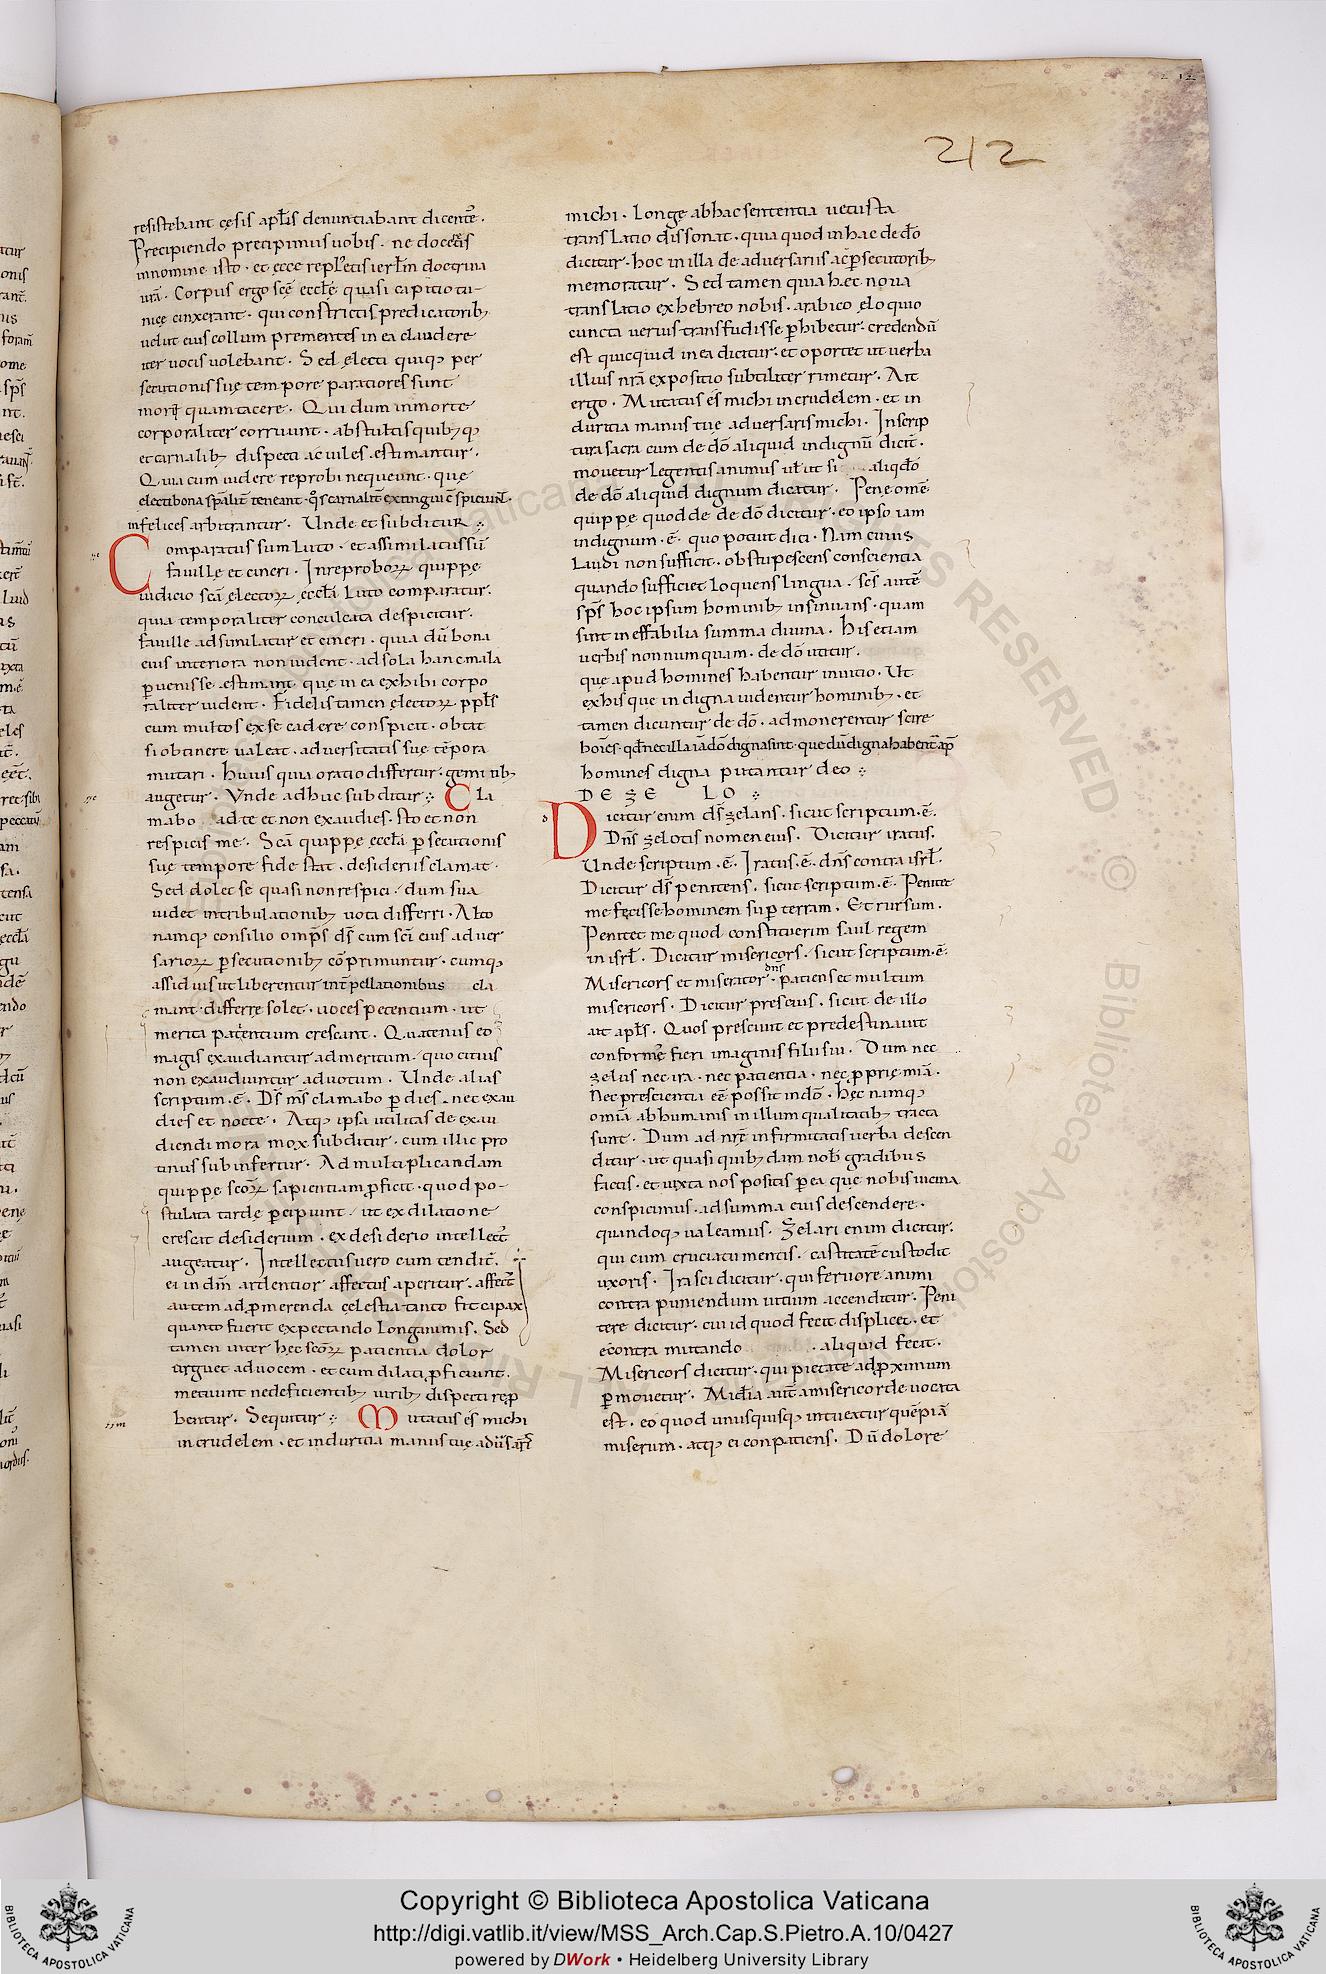 212
resistebant cęsis apłis denuntiabant dicentē.
Precipiendo precipimus uobis. ne doceatis
innomine isto. et ecce repletis ierłm doctrina
urā. Corpus ergo scē ecclē quasi capitio tu-
nicę cinxerant. qui constrictis predicatorib;
uelut eius collum prementes in ea claudere
iter uocis uolebant. Sed electi quiq; per
secutionis suę tempore paratiores sunt
mori quam tacere. Qui dum in morte
corporaliter corruunt. abstultis quibusq;
et carnalib; dispecti ac uiles estimantur.
Quia cum uidere reprobi nequeunt. quę
infelices arbitrantur. Unde et subditur
Comparatus sum luto. et assimilatus sū
fauillę et cineri. In reproborꝝ quippe
iudicio scā electorꝝ ecclā luto comparatur.
quia temporaliter conculcata despicitur.
fauille adsimilatur et cineri. quia dū bona
eius interiora non uident. ad sola hanc mala
puenisse estimant quę in ea exhibi corpo
raliter uident. Fidelis tamen electorꝝ ppłs
cum multos ex se cadere conspicit. obtat
si obtinere ualeat. aduersitatis suę tēpora
mutari. huius quia oratio differtur. gemitib;
augetur. Unde adhuc subditur. Cla
mabo ad te et non exaudies. sto et non
respicis me. Scā quippę ecclā psecutionis
suę tempore fide stat. desideriis clamat.
Sed dolet se quasi non respici. dum sua
uidet in tribulationib; uota differri. Alto
namq; consilio omps ds cum sci eius aduer
sariorꝝ psecutionib; cōprimuntur. cumq;
assiduis ut liberentur intpellationibus cla
mant. differre solet. uoces petentium. ut
merita patientium crescant. Quatenus eo
magis exaudiantur ad meritum. quo citius
non exaudiuntur ad uotum. Unde alias
scriptum .ē. Ds ms clamabo p dies. nec exau
dies et nocte. Atq; ipsa utilitas de exau
diendi mora mox subditur. cum illic pro
tinus subinfertur. Ad multiplicandam
quippe scorꝝ sapientiam pficit. quod po-
stulata tarde pcipiunt. ut ex dilatione
crescat desiderium. ex desiderio intellect
augeatur. Intellectus uero cum tendit.
ei in dm ardentior affectus aperitur. affect
autem ad pmerenda cęlestia tanto fit capax
quanto fuerit expectando longanimis. Sed
tamen inter hec scorꝝ patientia dolor
urguet ad uocem. et cum dilati pficiunt.
metuunt ne deficientib; uirib; dispecti rep
bentur. Sequitur. Mutatus es michi
in crudelem. et in duritia manus tuę aduersaris
michi. longe ab hac sententia uetusta
translatio dissonat. quia quod in hac de dō
dicitur. hoc in illa de aduersariis ac psecutorib;
memoratur. Sed tamen quia hec noua
translatio ex hebreo nobis. arabico eloquio
cuncta uerius transfudisse phibetur. credendū
est quicquid in ea dicitur. et oportet ut uerba
illius nrā expositio subtiliter rimetur. Ait
ergo. Mutatus es michi in crudelem. et in
duritia manus tuę aduersaris michi. Inscrip
tura sacra cum de dō aliquid indignū dicit.
mouetur legentis animus uł ut si aliqdō
de dō aliquid dignum dicatur. Pene omē
quippe quod de de dō dicitur. eo ipso iam
indignum .ē. quo potuit dici. Nam cuius
laudi non sufficit. obstupescens conscientia
quando sufficiet loquens lingua. Scs autē
sps hoc ipsum hominib; insinuans. quam
sint ineffabilia summa diuina. His etiam
uerbis nonnumquam. de dō utitur.
que apud homines habentur in uitio. Ut
ex his que indigna uidentur hominib;. et
tamen dicuntur de dō. admonerentur scire
homines digna putantur deo
DE ZELO
Dicitur enim ds zelans. sicut scriptum .ē.
Dns zelotis nomen eius. Dicitur iratus.
Unde scriptum .ē. Iratus .ē. dns contra isrł.
Dicitur ds penitens. sicut scriptum .ē. Penitet
me fecisse hominem sup terram. Et rursum.
Penitet me quod constituerim saul regem
in isrł. Dicitur misericors. sicut scriptum .ē.
Misericors et miserator dns. patiens et multum
misericors. Dicitur prescius. sicut de illo
ait apłs. Quos presciuit et predestinauit
conformes fieri imaginis filii sui. Dum nec
zelus nec ira. nec patientia. nec pprię miā.
Nec prescientia eē possit in dō. hęc namq;
omia ab humanis in illum qualitatib; tracta
sunt. Dum ad nrē infirmitatis uerba descen
ditur. ut quasi quib; dam nob gradibus
factis. et iuxta nos positis p ea que nobis uicina
conspicimus. ad summa eius descendere.
quandoq; ualeamus. Zelari enim dicitur.
qui cum cruciatu mentis. castitatē custodit
uxoris. Irasci dicitur. qui feruore animi
contra puniendum uitium accenditur. Peni
tere dicitur. cui id quod fecit displicet. et
econtra mutando aliquid fecit.
Misericors dicitur. qui pietate ad pximum
pmouetur. Midia aut a misericorde uocita
est. eo quod unusquisq; intueatur quēpiā
miserum. atq; ei conpatiens. Dū dolore
Copyright © Biblioteca Apostolica Vaticana
http://digi.vatlib.it/view/MSS_Arch.Cap.S.Pietro.A.10/0427
powered by DWork • Heidelberg University Library
BIBLIOTECA APOSTOLICA VATICANA
BIBLIOTECA APOSTOLICA VATICANA